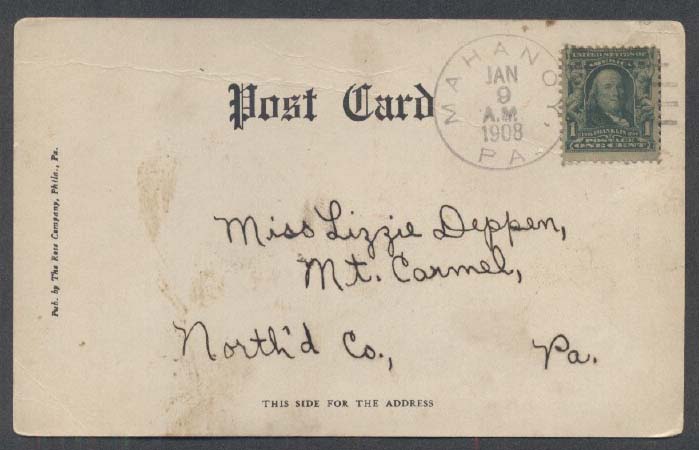 Post Card
MAHANOY,
JAN
9
A.M.
1908
PA.
UNITED STATES OF AMERICA
1 FRANKLIN 1
POSTAGE
ONE CENT
Pub. by The Ress Company, Phila., Pa.
Miss Lizzie Deppen,
Mt. Carmel,
North'd Co., Pa.
THIS SIDE FOR THE ADDRESS